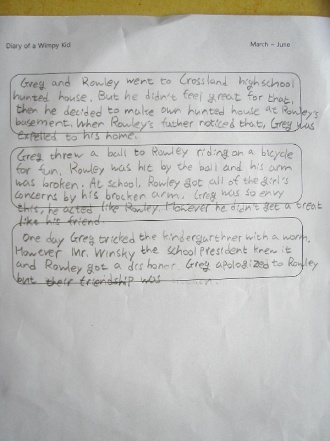 Diary of a Wimpy Kid
March – June
Greg and Rowley went to Crossland highschool
hunted house. But he didn't feel great for that,
then he decided to make own hunted house at Rowley's
basement. When Rowley's father noticed that, Greg was
expelled to his home.
Greg threw a ball to Rowley riding on a bicycle
for fun. Rowley was hit by the ball and his arm
was broken. At school, Rowley got all of the girl's
concerns by his brocken arm. Greg was so envy
this, he acted like Rowley. However he didn't get a treat
like his friend.
One day Greg tricked the kindergurthner with a worm.
However Mr. Winsky the school president knew it
and Rowley got a dishonor. Greg apologized to Rowley
but their friendship was